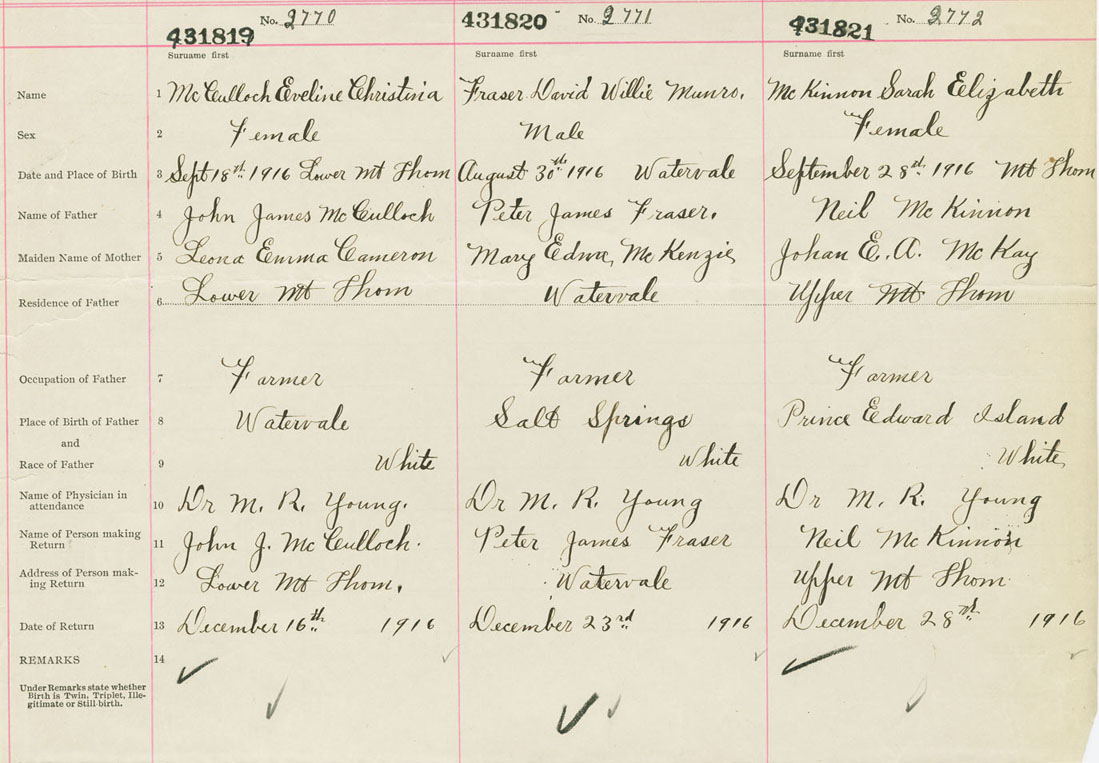 No. 2770 No. 2771 No. 2772
431819 431820 431821
Surname first Surname first Surname first
Name 1 McCulloch Eveline Christina Fraser David Willie Munro. McKinnon Sarah Elizabeth
Sex 2 Female Male Female
Date and Place of Birth 3 Sept 18th 1916 Lower Mt Thom August 30th 1916 Watervale September 28th 1916 Mt Thom
Name of Father 4 John James McCulloch Peter James Fraser. Neil McKinnon
Maiden Name of Mother 5 Leona Emma Cameron Mary Edna McKenzie Johan E. A. McKay
Residence of Father 6 Lower Mt Thom Watervale Upper Mt Thom
Occupation of Father 7 Farmer Farmer Farmer
Place of Birth of Father 8 Watervale Salt Springs Prince Edward Island
and
Race of Father 9 White White White
Name of Physician in
attendance 10 Dr M. R. Young. Dr M. R. Young Dr M. R. Young
Name of Person making
Return 11 John J. McCulloch. Peter James Fraser Neil McKinnon
Address of Person mak-
ing Return 12 Lower Mt Thom. Watervale Upper Mt Thom
Date of Return 13 December 16th 1916 December 23rd 1916 December 28th 1916
REMARKS 14
Under Remarks state whether
Birth is Twin, Triplet, Ille-
gitimate or Still-birth.